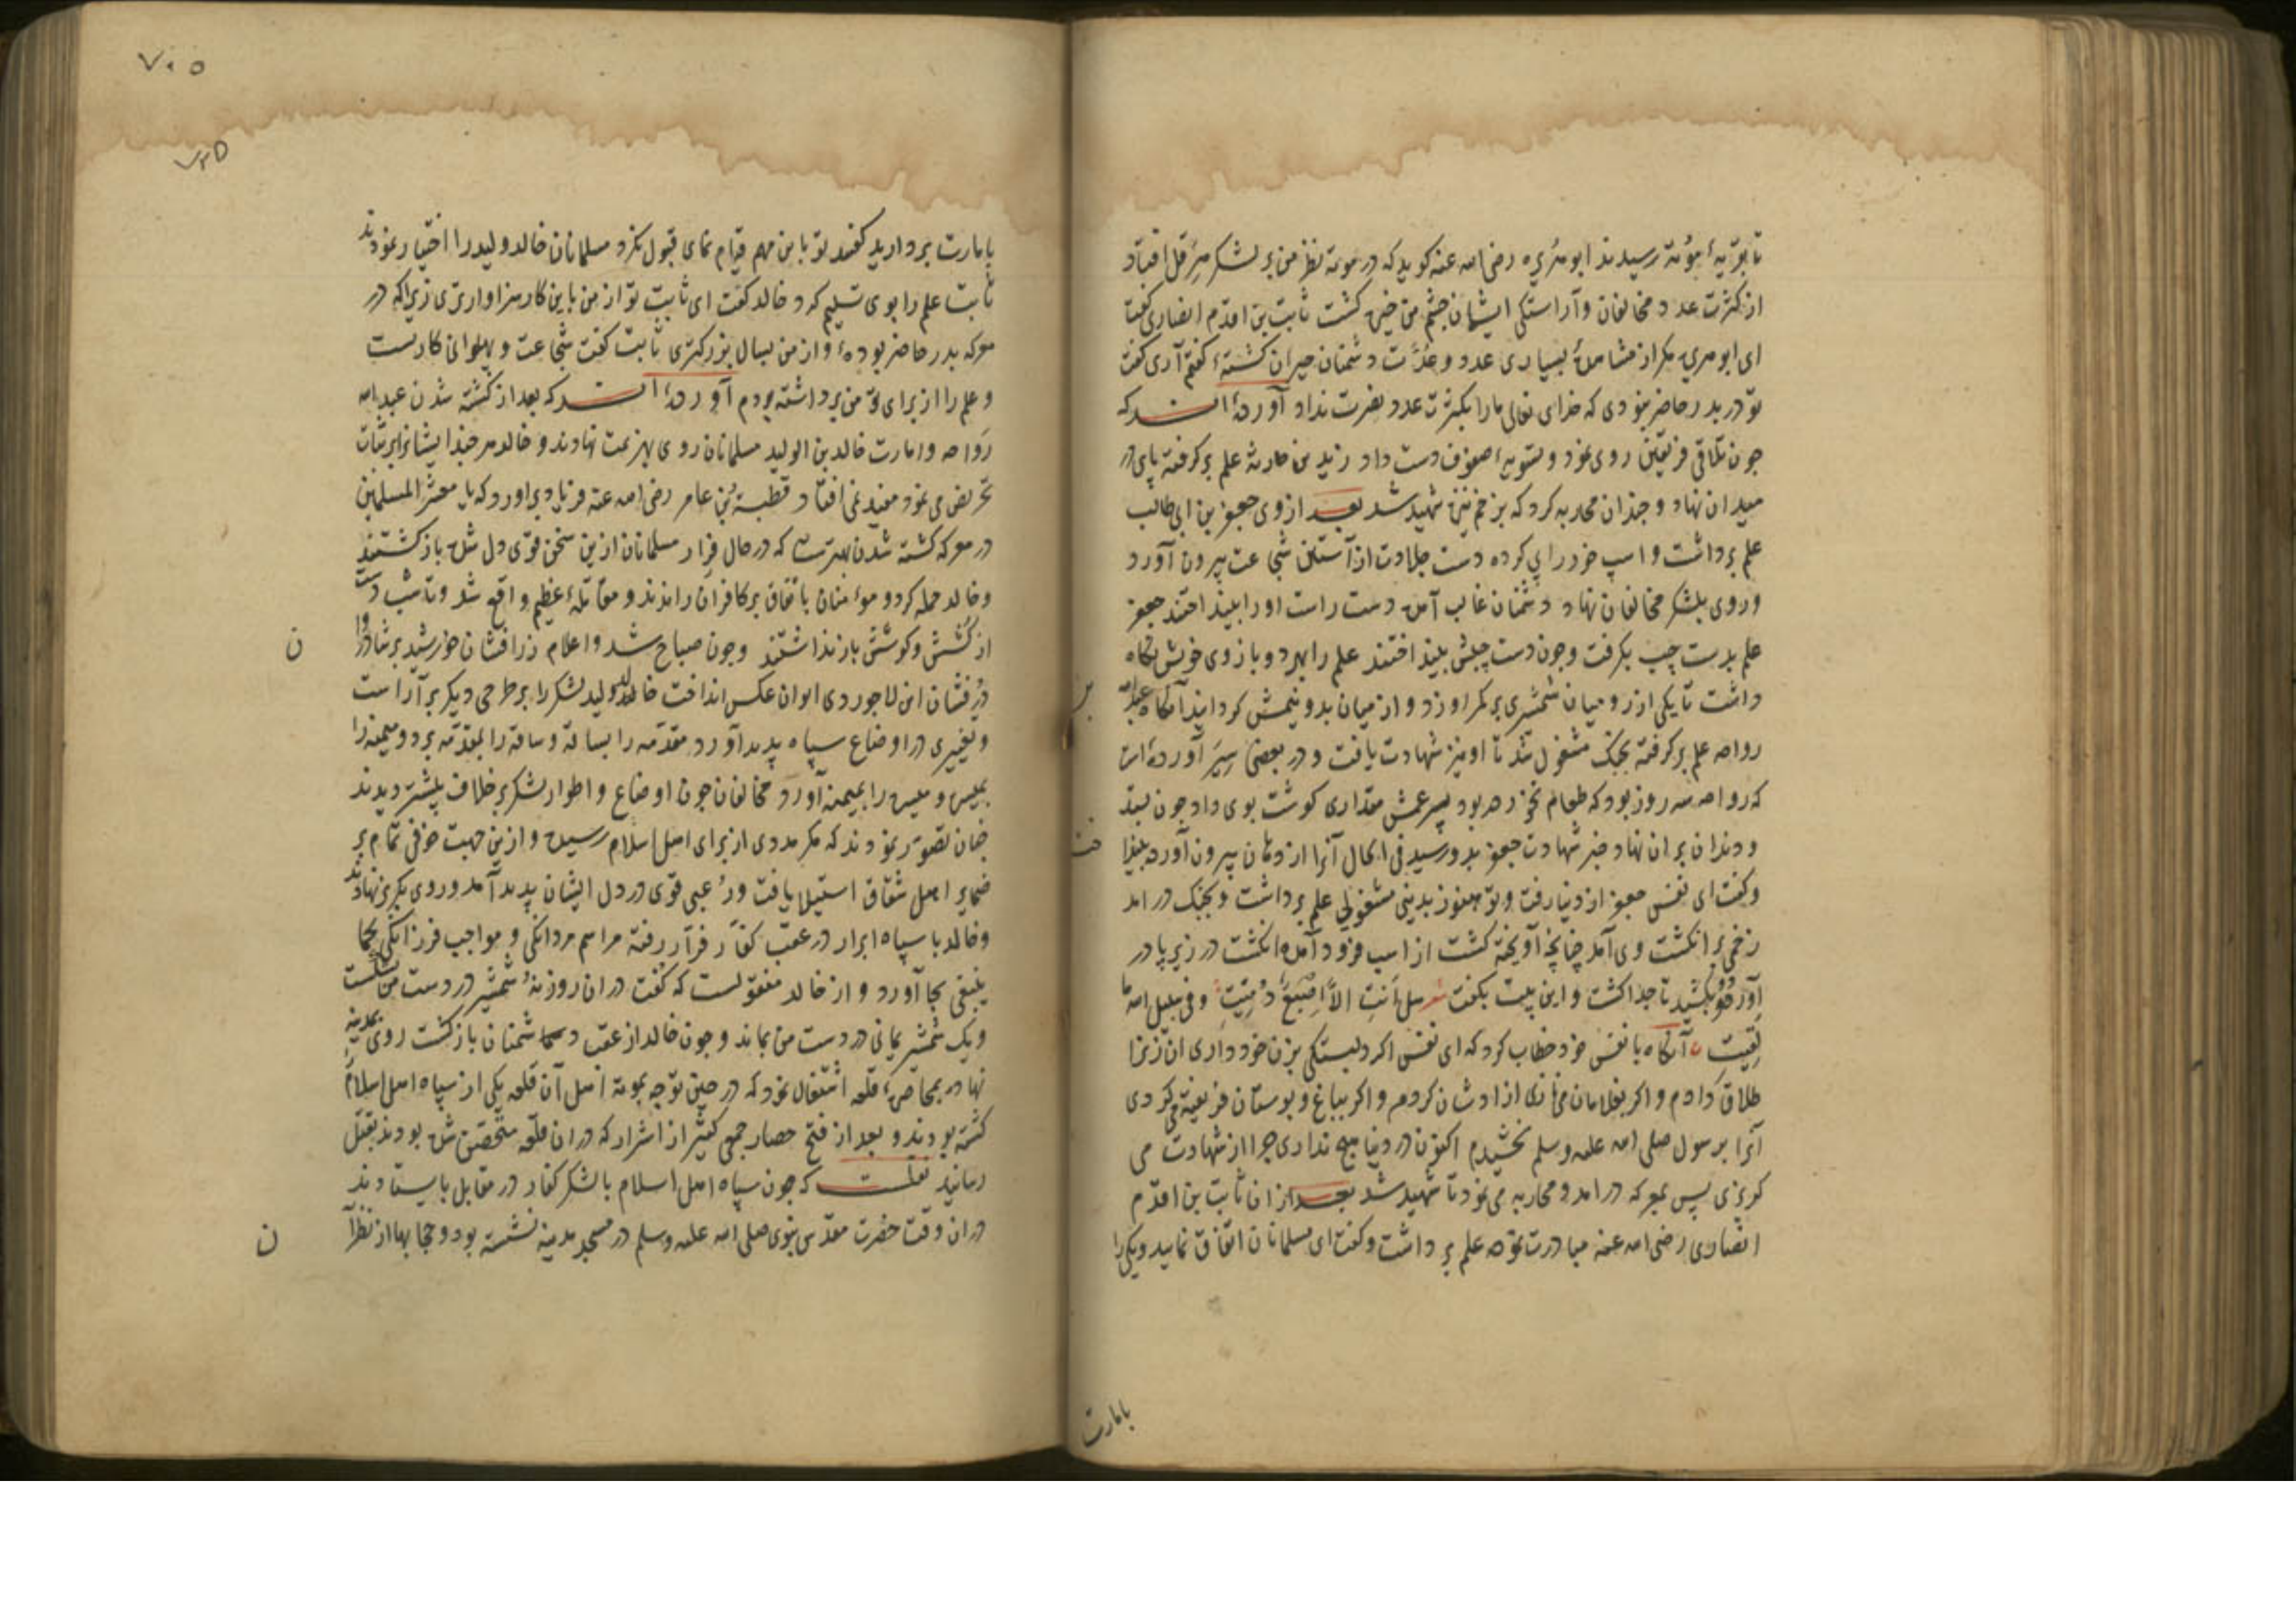 تا بقریهٔ مؤته رسیدند ابوهریره رضی الله عنه کوید که در موته نظر من بر لشکر هرقل افتاد
از کثرت عدد مخالفان و آراستکی ایشان چشم من خیره کشت ثابت بن اقدم انصاری کفت
ای ابوهریره مکر از مشاهدهٔ بسیاری عدد و عدّت دشمنان حیران کشتهٔ کفتم آری کفت
تو در بدر حاضر نبودی که خدای تعالی مارا بکثرت عدد نصرت نداد آورده‌اند که
چون تلاقی فریقین روی نمود و تسویهٔ صفوف دست داد زید بن حارثه علم بر کرفته پای در
میدان نهاد و چندان محاربه کرد که بزخم نیزه شهید شد بعد از وی جعفر بن ابی طالب
علم برداشت و اسپ خود را پی کرده دست جلادت از آستین شجاعت بیرون آورد
و روی بلشکر مخالفان نهاد دشمنان غالب آمده دست راست او را بینداختند جعفر
علم بدست چپ بکرفت و چون دست چپش بینداختند علم را بهر دو بازوی خویش نکاه
داشت تا یکی از رومیان شمشیری بر کمر او زد و از میان بدو نیمش کردانید آنکاه عبدالله
رواحه علم بر کرفته بجنک مشغول شد تا او نیز شهادت یافت و در بعضی سیَر آورده‌اند
که رواحه سه روز بود که طعام نخورده بود پسر عمش مقداری کوشت بوی داد چون بستد
و دندان بر ان نهاد خبر شهادت جعفر بدو رسید فی الحال آنرا از دهان بیرون آورده بینداخت
و کفت ای نفس جعفر از دنیا رفت و تو هنوز بدینی مشغولی علم برداشت و بجنک در امد
زخمی بر انکشت وی آمد چنانچه آویخته کشت از اسپ فرود آمده انکشت در زیر پا در
آورد و بکشید تا جدا کشت و این بیت بکفت شعر هل اَنتِ الاّ اِصبَعٌ دُمِیَتِ وفی سبیل الله ما
لقیتِ آنکاه با نفس خود خطاب کرد که ای نفس اکر دلبستکی بزن خود داری ان زنرا
طلاق دادم و اکر بغلامان می نازی ازادشان کردم و اکر بباغ و بوستان فریفته می کردی
آنرا برسول صلی الله علیه وسلم بخشیدم اکنون در دنیا هیچ نداری چرا از شهادت می
کریزی پس بمعرکه در امد و محاربه می نمود تا شهید شد بعد از ان ثابت بن اقدم
انصاری رضی الله عنه مبادرت نموده علم برداشت و کفت ای مسلمانان اتفاق نمایید و یکی را
بامارت
۷۰۵
۷۲۵
بامارت بردارید کفتند تو باین مهم قیام نمای قبول نکرد مسلمانان خالد ولید را اختیار نمودند
ثابت علم را بوی تسلیم کرد خالد کفت ای ثابت تو از من باین کار سزاوارتری زیرا که در
معرکه بدر حاضر بودهٔ و از من بسال بزرکتری ثابت کفت شجاعت و پهلوانی کار تست
و علم را از برای تو من برداشته بودم آورده‌اند که بعد از کشته شدن عبدالله
رواحه و امارت خالد بن الولید مسلمانان روی بهزیمت نهادند و خالد هر چند ایشانرا بر ثبات
تحریض می نمود مفید نمی افتاد قطبة بن عامر رضی الله عنه فریاد براورد که یا معشر المسلمین
در معرکه کشته شدن بهتر است که در حال فرار مسلمانان ازین سخن قوی دل شده باز کشتند
و خالد حمله کرد و مؤمنان باتفاق بر کافران راندند و مقاتلهٔ عظیم واقع شد و تا شب دست
از کشش و کوشش باز نداشتند و چون صباح شد و اعلام زرافشان خورشید بر
درفشان این لاجوردی ایوان عکس انداخت خالد ولید لشکر را بر طرحی دیکر بر آراست
و تغییری در اوضاع سپاه پدید آورد مقدمه را بساقه و ساقه را بمقدمه برد و میمنه را
بمیسره و میسره را بمیمنه آورد مخالفان چون اوضاع و اطوار لشکر بر خلاف پیشتر دیدند
چنان تصوّر نمودند که مکر مددی از برای اهل اسلام رسیده و ازین جهت خوفی تمام بر
ضمایر اهل شقاق استیلا یافت و رُعبی قوی در دل ایشان پدید آمد و روی بکریز نهادند
و خالد با سپاه ابرار در عقب کفار فرار رفته مراسم مردانکی و مواجب فرزانکی کما
ینبغی بجا آورد و از خالد منقولست که کفت در ان روز نه شمشیر در دست من شکست
و یک شمشیر یمانی در دست من بماند و چون خالد از عقب دشمنان باز کشت روی بمدینه
نهاد بمحاصرهٔ قلعه اشتغال نمود که در حین توجه بموته اهل آن قلعه یکی از سپاه اهل اسلام را
کشته بودند و بعد از فتح حصار جمعی کثیر از اشرار که در ان قلعه متحصّن شده بودند بقتل
رسانید نقلست که چون سپاه اهل اسلام با لشکر کفار در مقابل بایستادند
در ان وقت حضرت مقدس نبوی صلی الله علیه وسلم در مسجد مدینه نشسته بود و حجابها از نظر آ
ن
ن